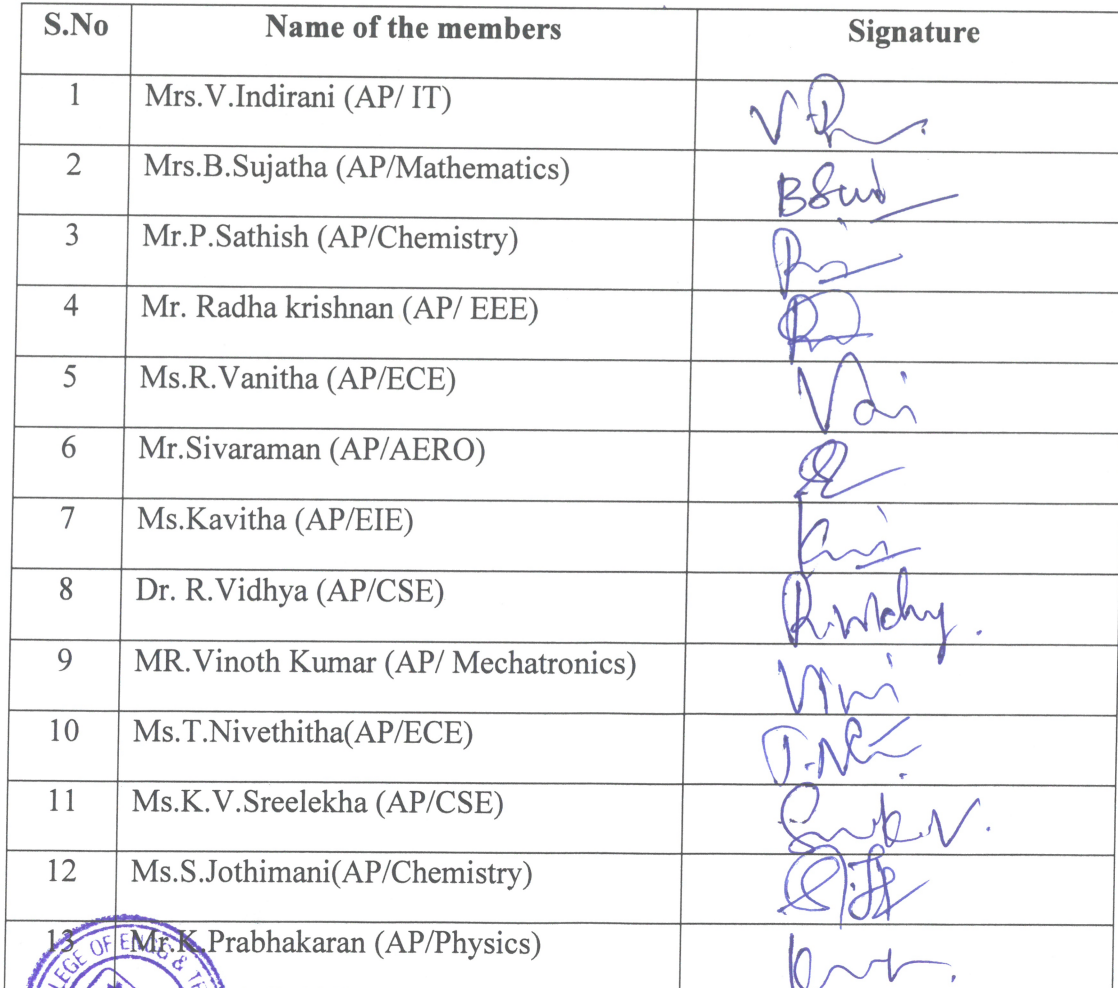 S.No Name of the members Signature
1 Mrs.V.Indirani (AP/ IT)
2 Mrs.B.Sujatha (AP/Mathematics)
3 Mr.P.Sathish (AP/Chemistry)
4 Mr. Radha krishnan (AP/ EEE)
5 Ms.R.Vanitha (AP/ECE)
6 Mr.Sivaraman (AP/AERO)
7 Ms.Kavitha (AP/EIE)
8 Dr. R.Vidhya (AP/CSE)
9 MR.Vinoth Kumar (AP/ Mechatronics)
10 Ms.T.Nivethitha(AP/ECE)
11 Ms.K.V.Sreelekha (AP/CSE)
12 Ms.S.Jothimani(AP/Chemistry)
13 Mr.K.Prabhakaran (AP/Physics)
OF